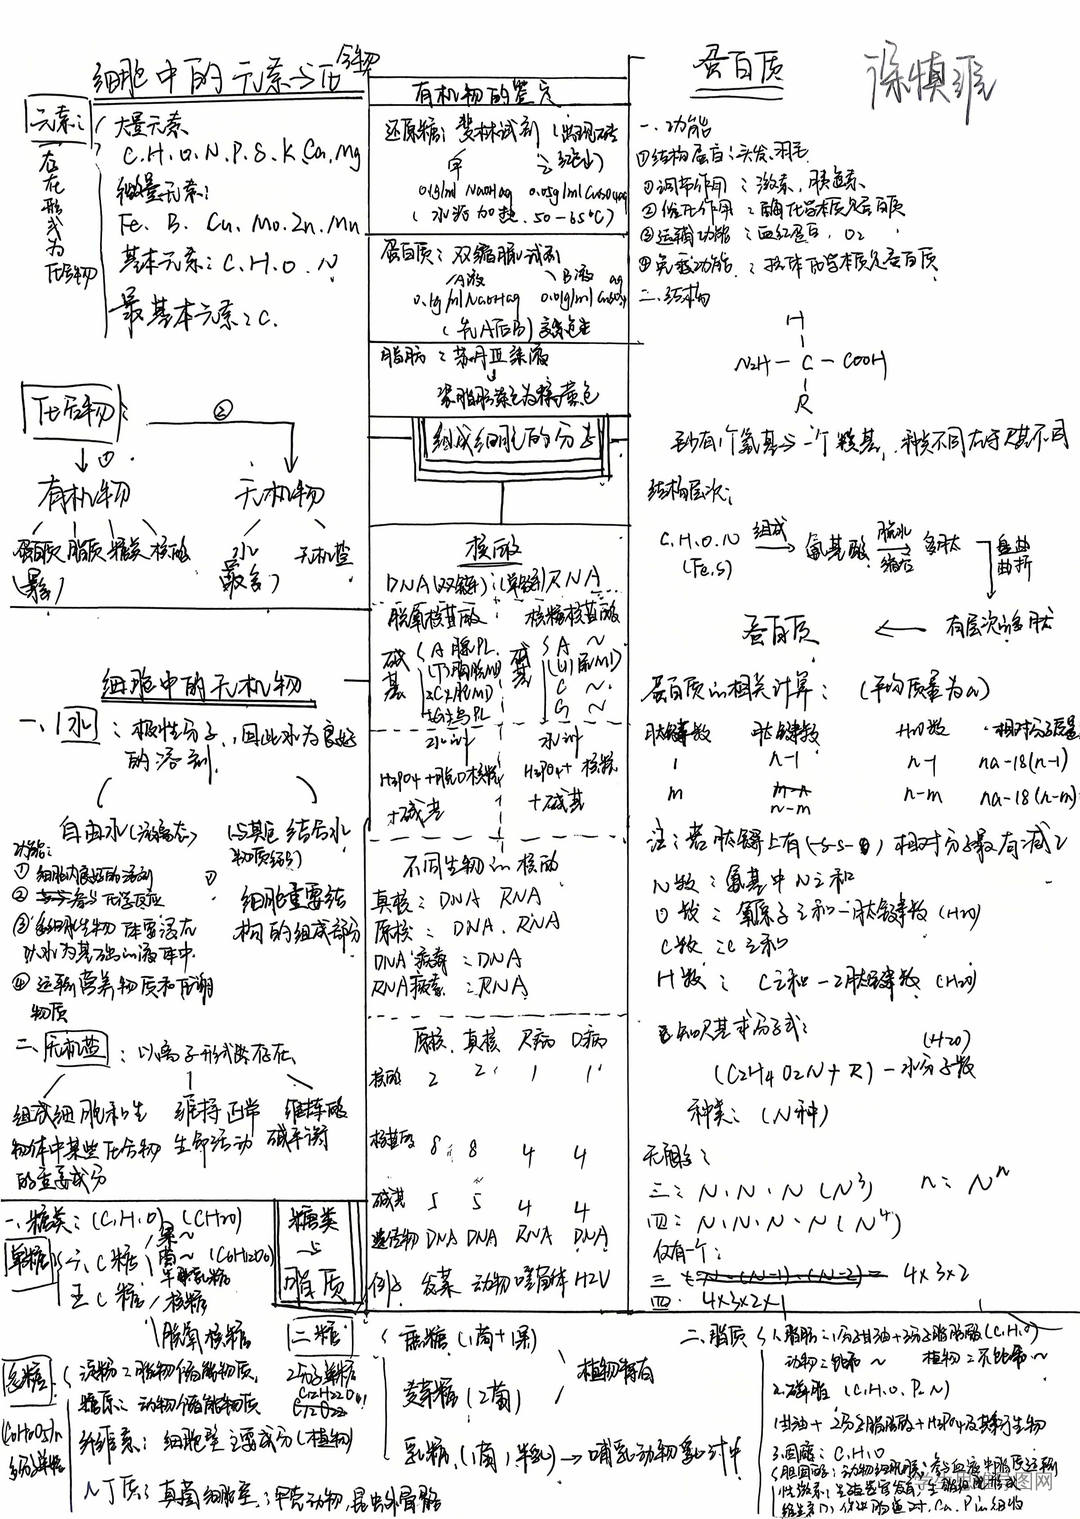 细胞中的元素与化合物
元素:
存在形式为化合物
大量元素
C.H.O.N.P.S.K.Ca.Mg
微量元素:
Fe. B. Cu. Mo. Zn. Mn
基本元素: C.H.O.N
最基本元素: C.
化合物:
① ②
有机物 无机物
蛋白质 脂质 糖类 核酸
水 无机盐
细胞中的无机物
一、水: 极性分子, 因此水为良好
的溶剂
自由水(游离态)
(与其他物质结合) 结合水
功能:
① 细胞内良好的溶剂
② 参与化学反应
③ 多细胞生物体要浸在
以水为基础的液体中.
④ 运输营养物质和代谢
物质
① 细胞重要结
构的组成部分
二、无机盐: 以离子形式存在
组成细胞和生
物体中某些化合物
的重要成分
维持正常
生命活动
维持酸
碱平衡
有机物的鉴定
还原糖: 斐林试剂 (出现砖红色)
甲 乙
0.1g/ml NaOHaq 0.05g/ml CuSO4aq
(水浴加热. 50-65℃)
蛋白质: 双缩脲试剂
A液 B液
0.1g/ml NaOHaq 0.01g/ml CuSO4aq
(先A后B) 紫色
脂肪: 苏丹Ⅲ染液
将脂肪染色为橘黄色
组成细胞的分子
核酸
DNA(双链): (单链)RNA
脱氧核苷酸 核糖核苷酸
碱基 碱基
水彻 水彻
H3PO4+脱O核糖
+碱基
H3PO4+核糖
+碱基
不同生物的核酸
真核: DNA RNA
原核: DNA. RNA
DNA病毒: DNA
RNA病毒: RNA
原核 真核 R病 D病
核酸 2 2 1 1
核苷酸 8 8 4 4
碱基 5 5 4 4
遗传物 DNA DNA RNA DNA
例: 发菜 动物 噬菌体 HIV
蛋白质
一、功能
①结构蛋白: 头发.羽毛
①调节作用: 激素, 胰岛素
②催化作用: 酶化学本质是蛋白质
③运输功能: 血红蛋白, O2
④免疫功能: 抗体化学本质是蛋白质
二、结构
H
N2H — C — COOH
R
至少有1个氨基与一个羧基, 种类不同在于R基不同
结构层次:
C.H.O.N (Fe.S) 组成 氨基酸 脱水缩合 多肽 盘曲曲折
蛋白质 有层次的多肽
蛋白质的相关计算: (平均质量为a)
肽链数 肽键数 H2O数 相对分子质量
1 n-1 n-1 na-18(n-1)
m n-m n-m na-18(n-m)
注: 若肽链上有(-S-S-) 相对分子质量有减2
N数: 氨基中N之和
O数: 氧原子之和-肽键数 (H2O)
C数: C之和
H数: C之和-2肽键数 (H2O)
已知R基求分子式:
(H2O)
(C2H4O2N+R)-水分子数
种类: (N种)
无限多:
三: N.N.N (N³) n: Nⁿ
四: N.N.N.N (N⁴)
仅有一个:
三 4×3×2
四: 4×3×2×1
糖类与脂质
一、糖类: (C.H.O) (CH2O)
单糖 六C糖 果~
(C6H12O6)
半乳糖
五C糖 核糖
脱氧核糖
二糖
2分子单糖
C12H22O11
蔗糖 (1葡+1果)
麦芽糖 (2葡)
植物特有
乳糖 (1葡, 1半乳) → 哺乳动物乳汁中
多糖
(C6H10O5)n
多分子单糖
淀粉: 植物储能物质,
糖原: 动物储能物质
纤维素: 细胞壁主要成分(植物)
几丁质: 真菌细胞壁,: 甲壳动物, 昆虫外骨骼
二、脂质
1.脂肪: 1分子甘油+3分子脂肪酸(C.H.O)
动物: 饱和~ 植物: 不饱和~
2.磷脂 (C.H.O.P.N)
1甘油+2分子脂肪酸+H3PO4及其衍生物
3.固醇: C.H.O
胆固醇: 动物细胞膜; 参与血液中脂质运输